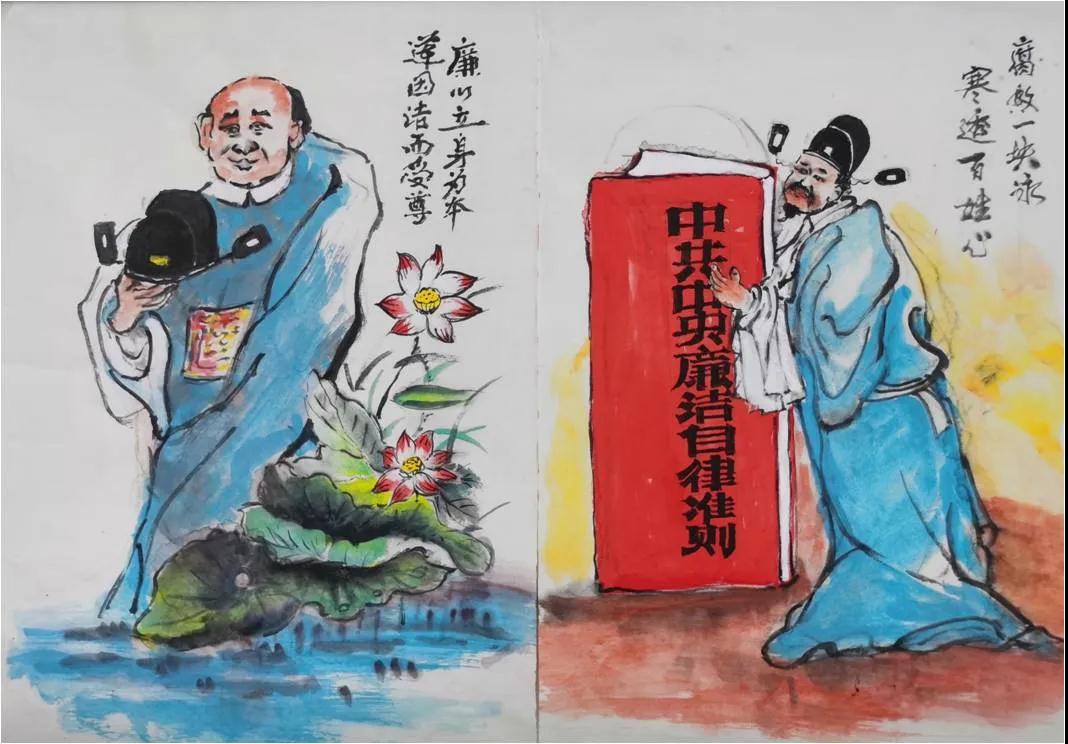 廉以立身为本
莲因洁而受尊
腐败一块冰
寒透百姓心
中共中央廉洁自律准则